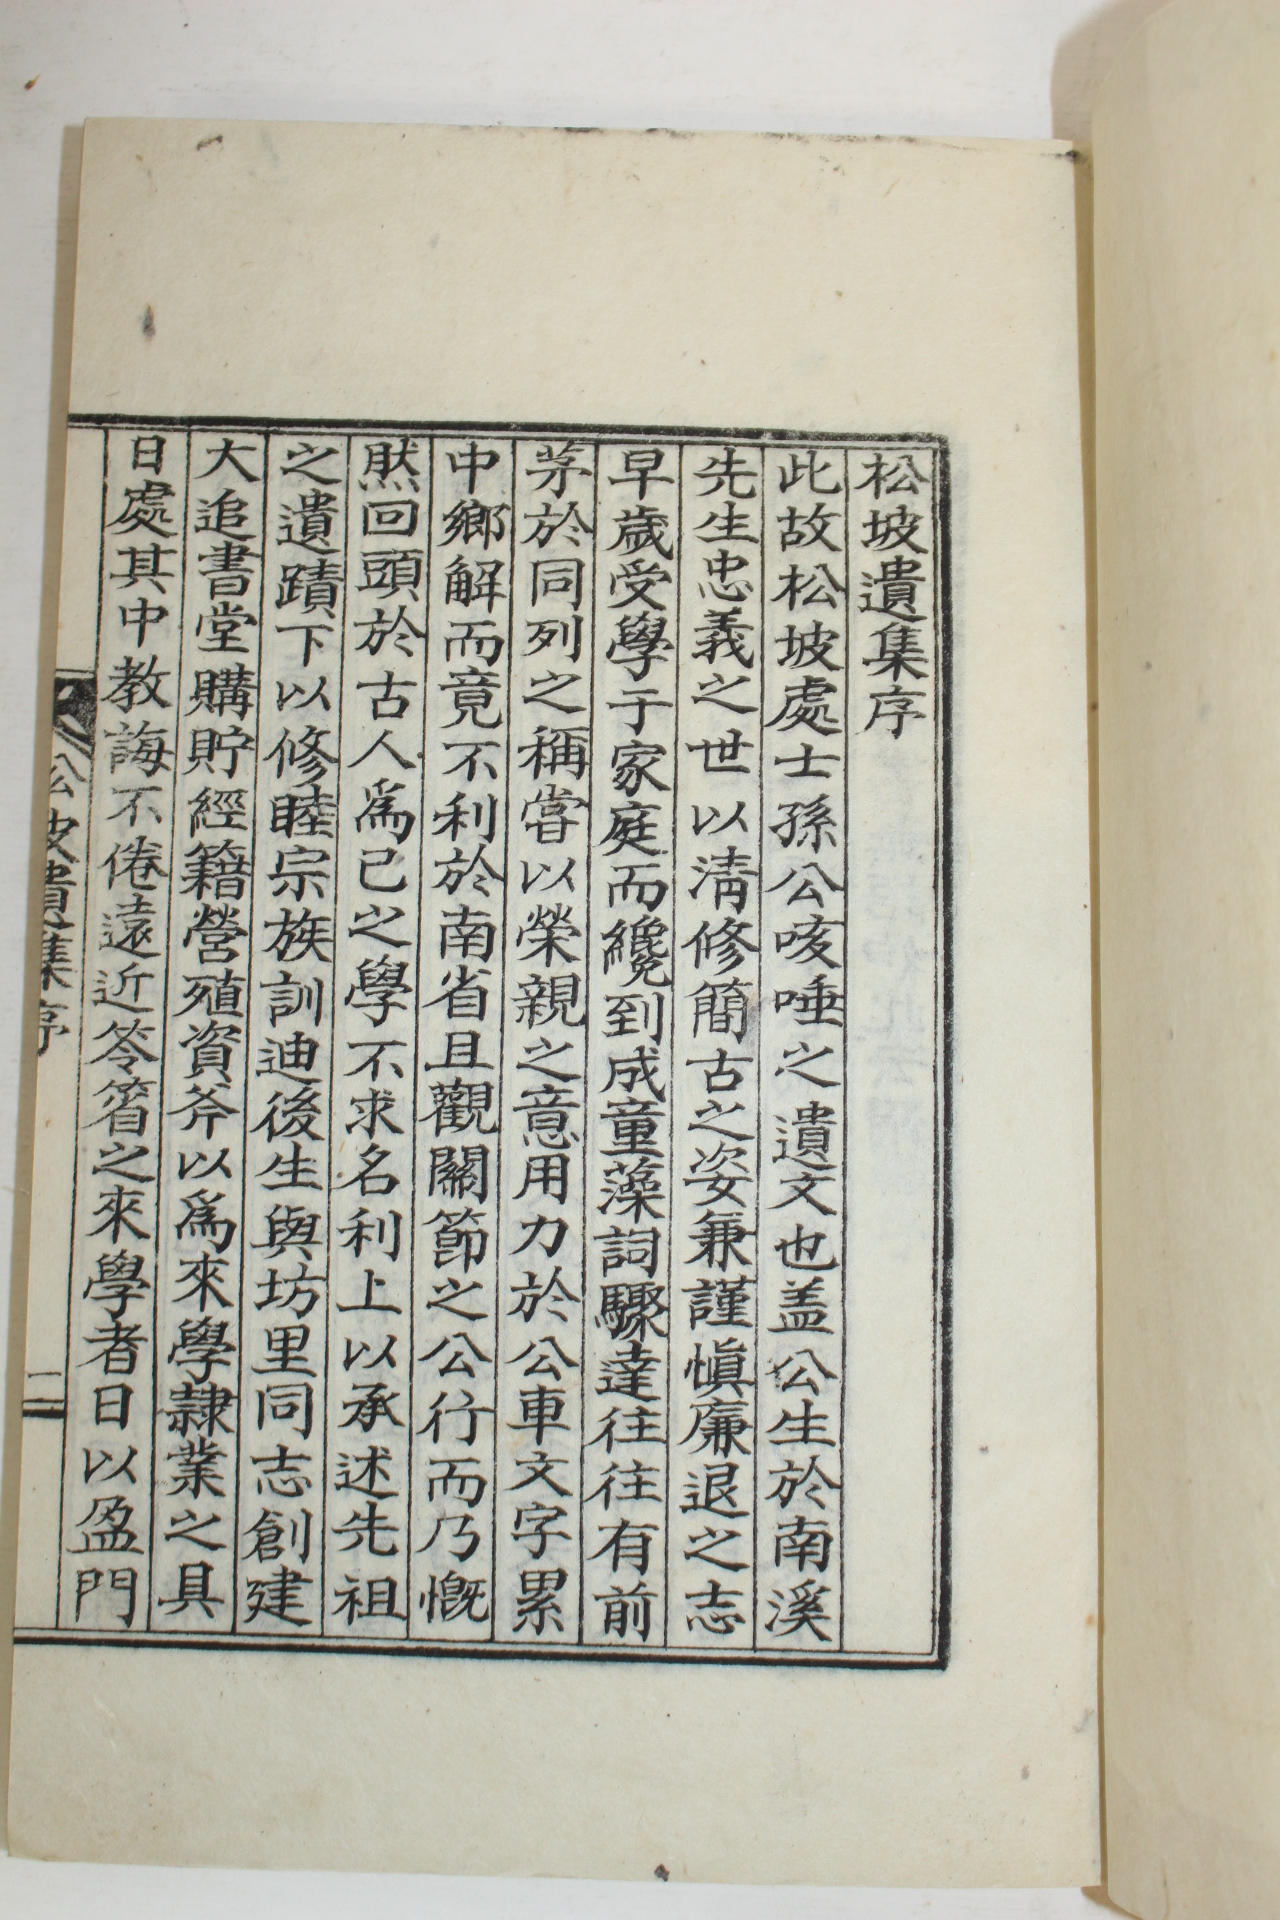 松坡遺集序
此故松坡處士孫公咳唾之遺文也盖公生於南溪
先生忠義之世以淸修簡古之姿兼謹愼廉退之志
早歲受學于家庭而纔到成童藻詞驟達往往有前
茅於同列之稱嘗以榮親之意用力於公車文字累
中鄕解而竟不利於南省且觀關節之公行而乃慨
然回頭於古人爲已之學不求名利上以承述先祖
之遺蹟下以修睦宗族訓迪後生與坊里同志創建
大追書堂購貯經籍營殖資斧以爲來學隷業之具
日處其中敎誨不倦遠近笭箵之來學者日以盈門
松坡遺集序
二